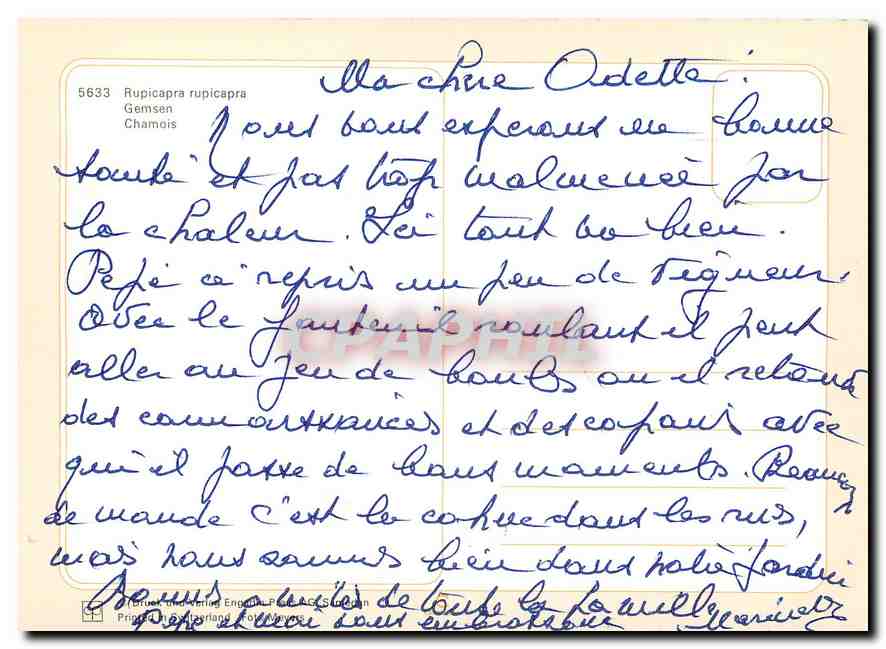 5633 Rupicapra rupicapra
Gemsen
Chamois
Ma chère Odette :
Nous vous espérons en bonne
santé et pas trop malmenée par
la chaleur. Ici tout va bien.
Pépé a repris un peu de vigueur.
Avec le fauteuil roulant il peut
aller au jeu de boules ou il retrouve
des connaissances et des copains avec
qui il passe de bons moments. Beaucoup
de monde c'est la cohue dans les rues,
mais nous sommes bien dans notre jardin
Bonnes amitiés de toute la famille
Pépé et moi vous embrassons
Druck und Verlag Engadin Press AG, Samedan
Printed in Switzerland Foto Meyers
CPAPHIL